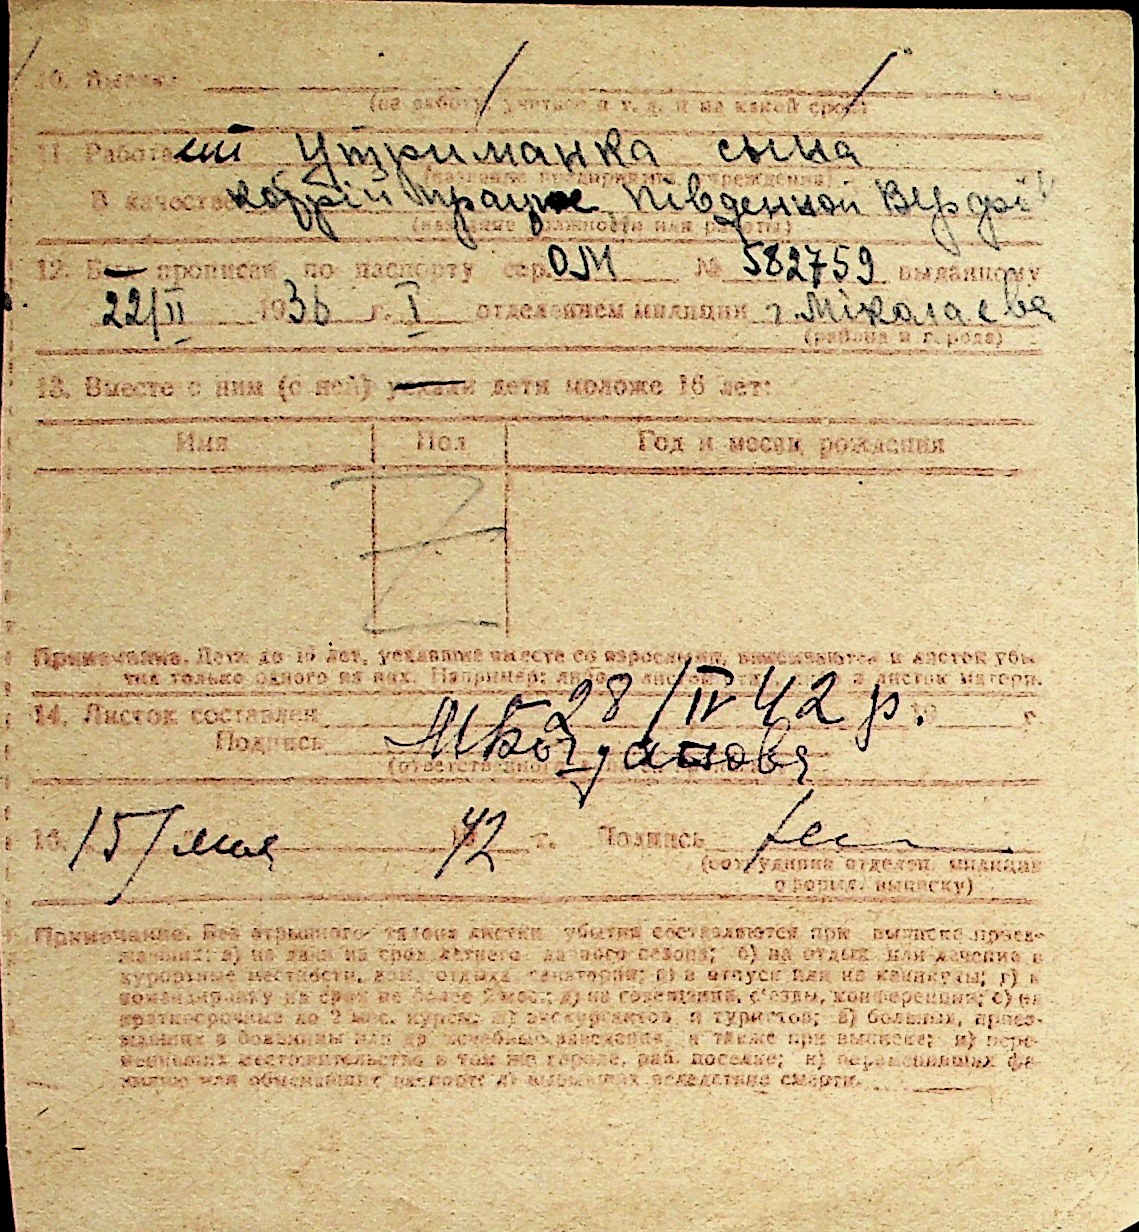 10. Выехал
(на работу, учиться и т. д. и на какой срок)
11. Работал утриманка сына
(название предприятия, учреждения)
В качестве котрій працює Південной Верфі
(название должности или работы)
12. Был прописан по паспорту сер. ОМ № 582759 выданному
22/II 1936 г. I отделением милиции г. Міколаєва
(района и города)
13. Вместе с ним (с ней) уехали дети моложе 16 лет:
Имя Пол Год и месяц рождения
Примечание. Дети до 16 лет, уехавшие вместе со взрослыми, вписываются в листок убы-
тия только одного из них. Например: в листок матери.
14. Листок составлен 28/IV 42 р. 19 г.
Подпись М Богданова
15. 15/мая 42 г. Подпись
(сотрудника отделен. милиции
о формл. выписку)
Примечание. Без отрывного талона листки убытия составляются при выписке приез-
жавших: а) на дачи на срок летнего дачного сезона; б) на отдых или лечение в
курортные местности, дома отдыха санатории; в) в отпуск или на каникулы; г) в
командировку на срок не более 2 мес.; д) на совещания, с'езды, конференции; е) на
краткосрочные до 2 мес. курсы; ж) экскурсантов и туристов; з) больных, приез-
жавших в больницы или др. лечебные заведения, а также при выписке; и) пере-
менивших местожительство в том же городе, раб. поселке; к) переменивших фа-
милию или обменявших паспорт; л) выбывших вследствие смерти.